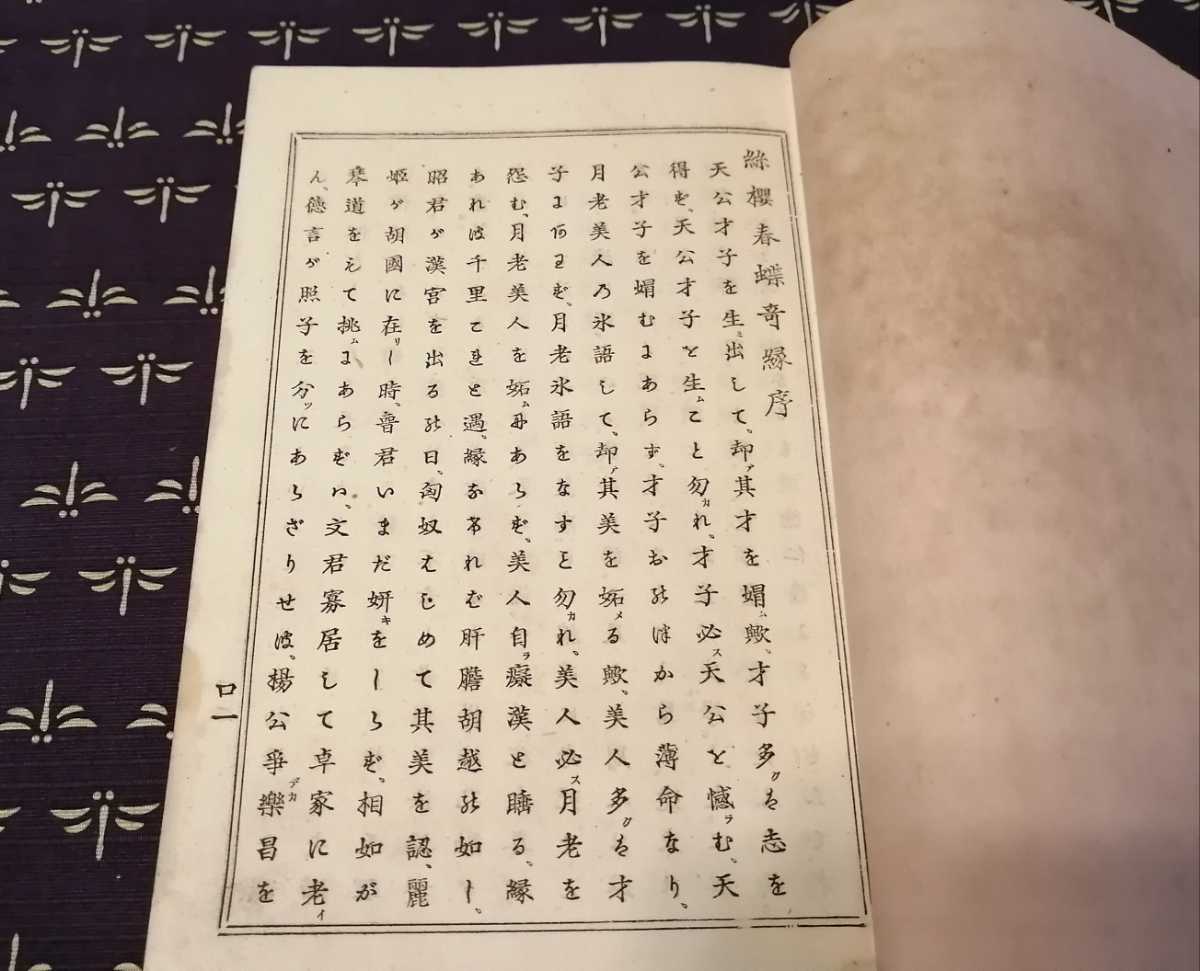 絲櫻春蝶奇縁序
天公才子を生ミ出して、却ア其才を媢ム歟、才子多クは志を
得ず、天公才子を生ムこと勿カれ、才子必ス天公を憾ヲむ、天
公才子を媢むにあらず、才子おのづから薄命なり、
月老美人の氷語して、却ア其美を妬メる歟、美人多クは才
子にあはず、月老氷語をなすと勿カれ、美人必ス月老を
怨む、月老美人を妬ムにあらず、美人自ラ癡漢と睛る、縁
あれば千里こゑと遇、縁なければ肝膽胡越の如し、
昭君が漢宮を出るの日、匈奴はじめて其美を認、麗
姫が胡國に在リし時、晉君いまだ妍キをしらず、相如が
琴道をもて挑ムにあらずは、文君寡居して卓家に老イ
ん、徳言が照子を分ツにあらざりせば、楊公爭デカ樂昌を
口一